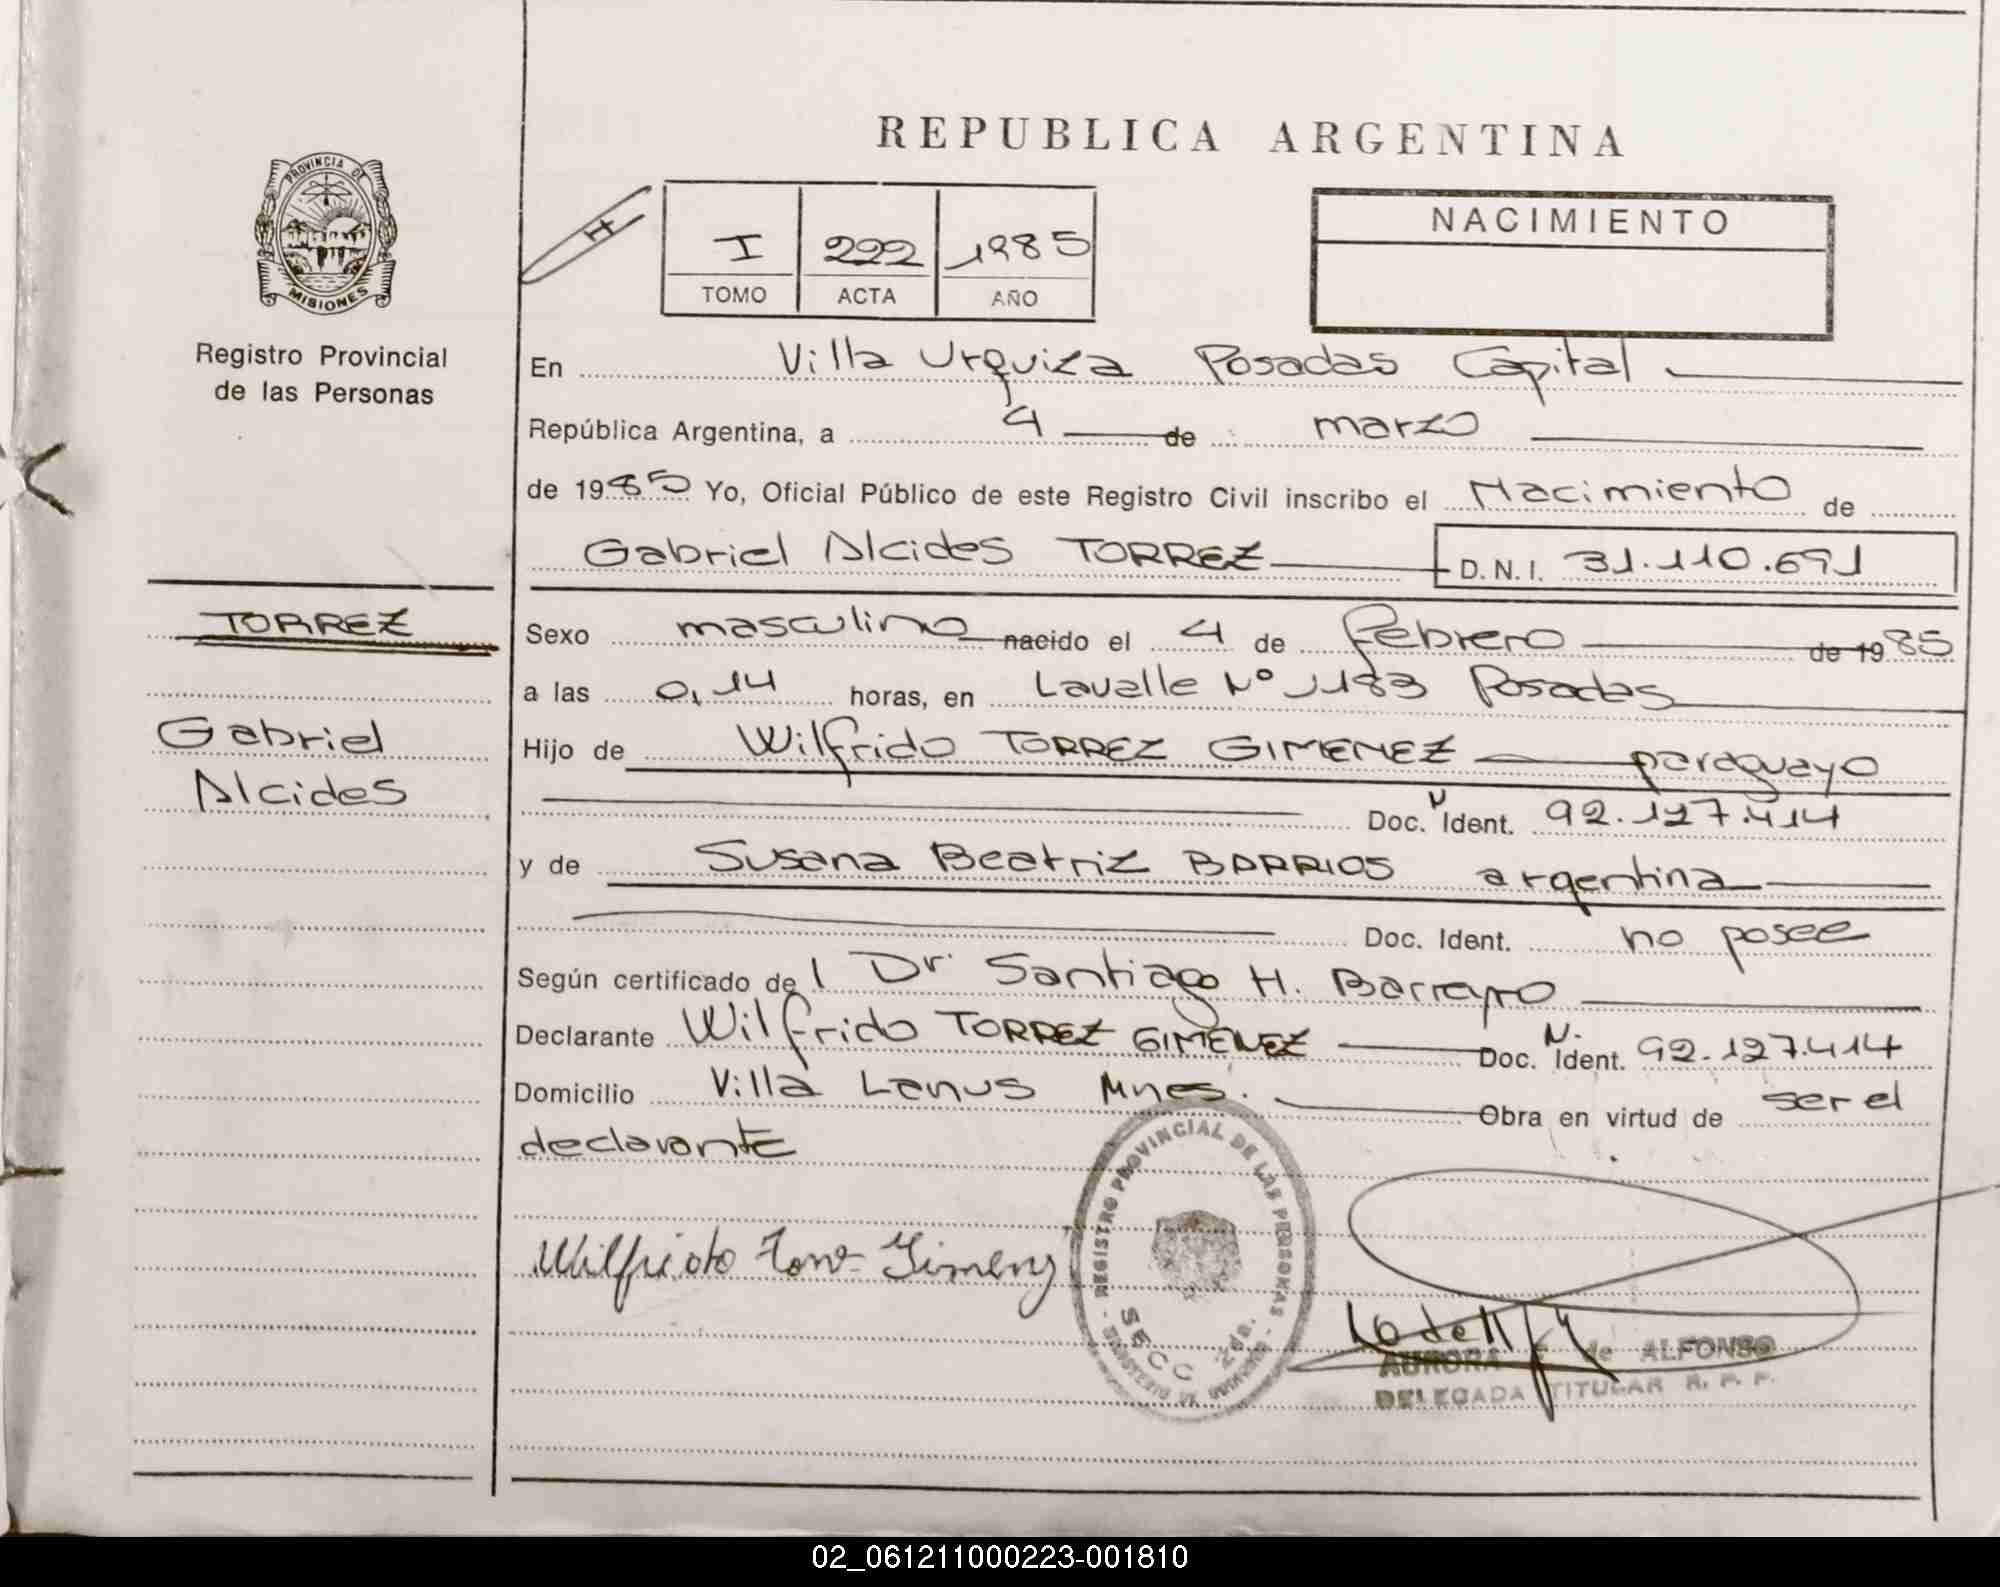 REPUBLICA ARGENTINA
PROVINCIA DE
MISIONES
Registro Provincial
de las Personas
H
I 222 1985
TOMO ACTA AÑO
NACIMIENTO
En Villa Urquiza Posadas Capital
República Argentina, a 4 de marzo
de 1985 Yo, Oficial Público de este Registro Civil inscribo el Nacimiento de
Gabriel Alcides TORREZ D.N.I. 31.110.691
TORREZ
Gabriel
Alcides
Sexo masculino nacido el 4 de Febrero de 1985
a las 0,14 horas, en Lavalle Nº 1183 Posadas
Hijo de Wilfrido TORREZ GIMENEZ paraguayo
Doc. N Ident. 92.127.414
y de Susana Beatriz BARRIOS argentina
Doc. Ident. no posee
Según certificado de l Dr. Santiago H. Barreyro
Declarante Wilfrido TORREZ GIMENEZ Doc. N. Ident. 92.127.414
Domicilio Villa Lanus Mnes. Obra en virtud de ser el
declarante
REGISTRO PROVINCIAL DE LAS PERSONAS
SECC 2da.
Wilfrido Gimenez
AURORA de ALFONSO
DELEGADA TITULAR R. P. P.
02_061211000223-001810